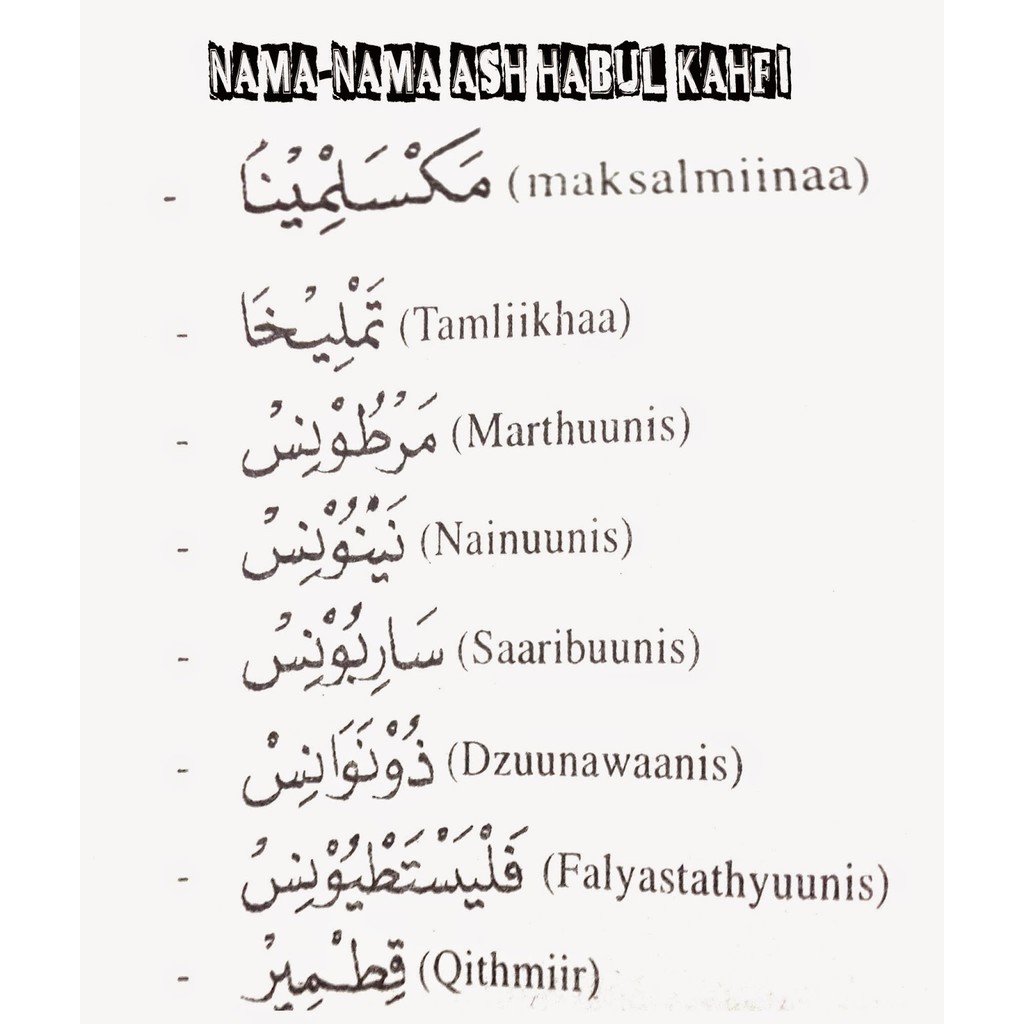 NAMA-NAMA ASH HABUL KAHFI
- مَكْسَلْمِيْنَا (maksalmiinaa)
- تَمْلِيْخَا (Tamliikhaa)
- مَرْطُوْنِسُ (Marthuunis)
- نَيْنُوْنِسُ (Nainuunis)
- سَارِبُوْنِسُ (Saaribuunis)
- ذُوْنَوَانِسْ (Dzuunawaanis)
- فَلْيَسْتَطْيُوْنِسُ (Falyastathyuunis)
- قِطْمِيْرُ (Qithmiir)